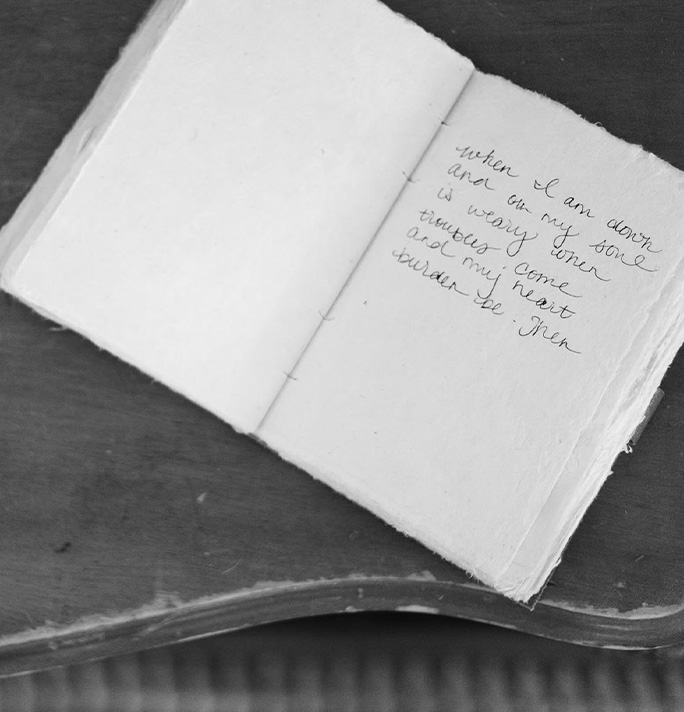 when I am down
and oh my soul
is weary when
troubles come
and my heart
burden be. Then